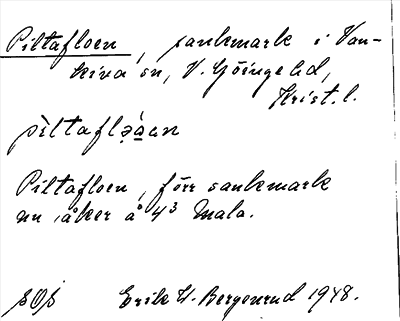 Piltafloen, sankmark i Van-
kiva sn, V. Göinge hd,
Krist. l.
Piltafloen, förr sankmark
nu åker å 4³ Mala.
Erik H. Bergenrud 1948.